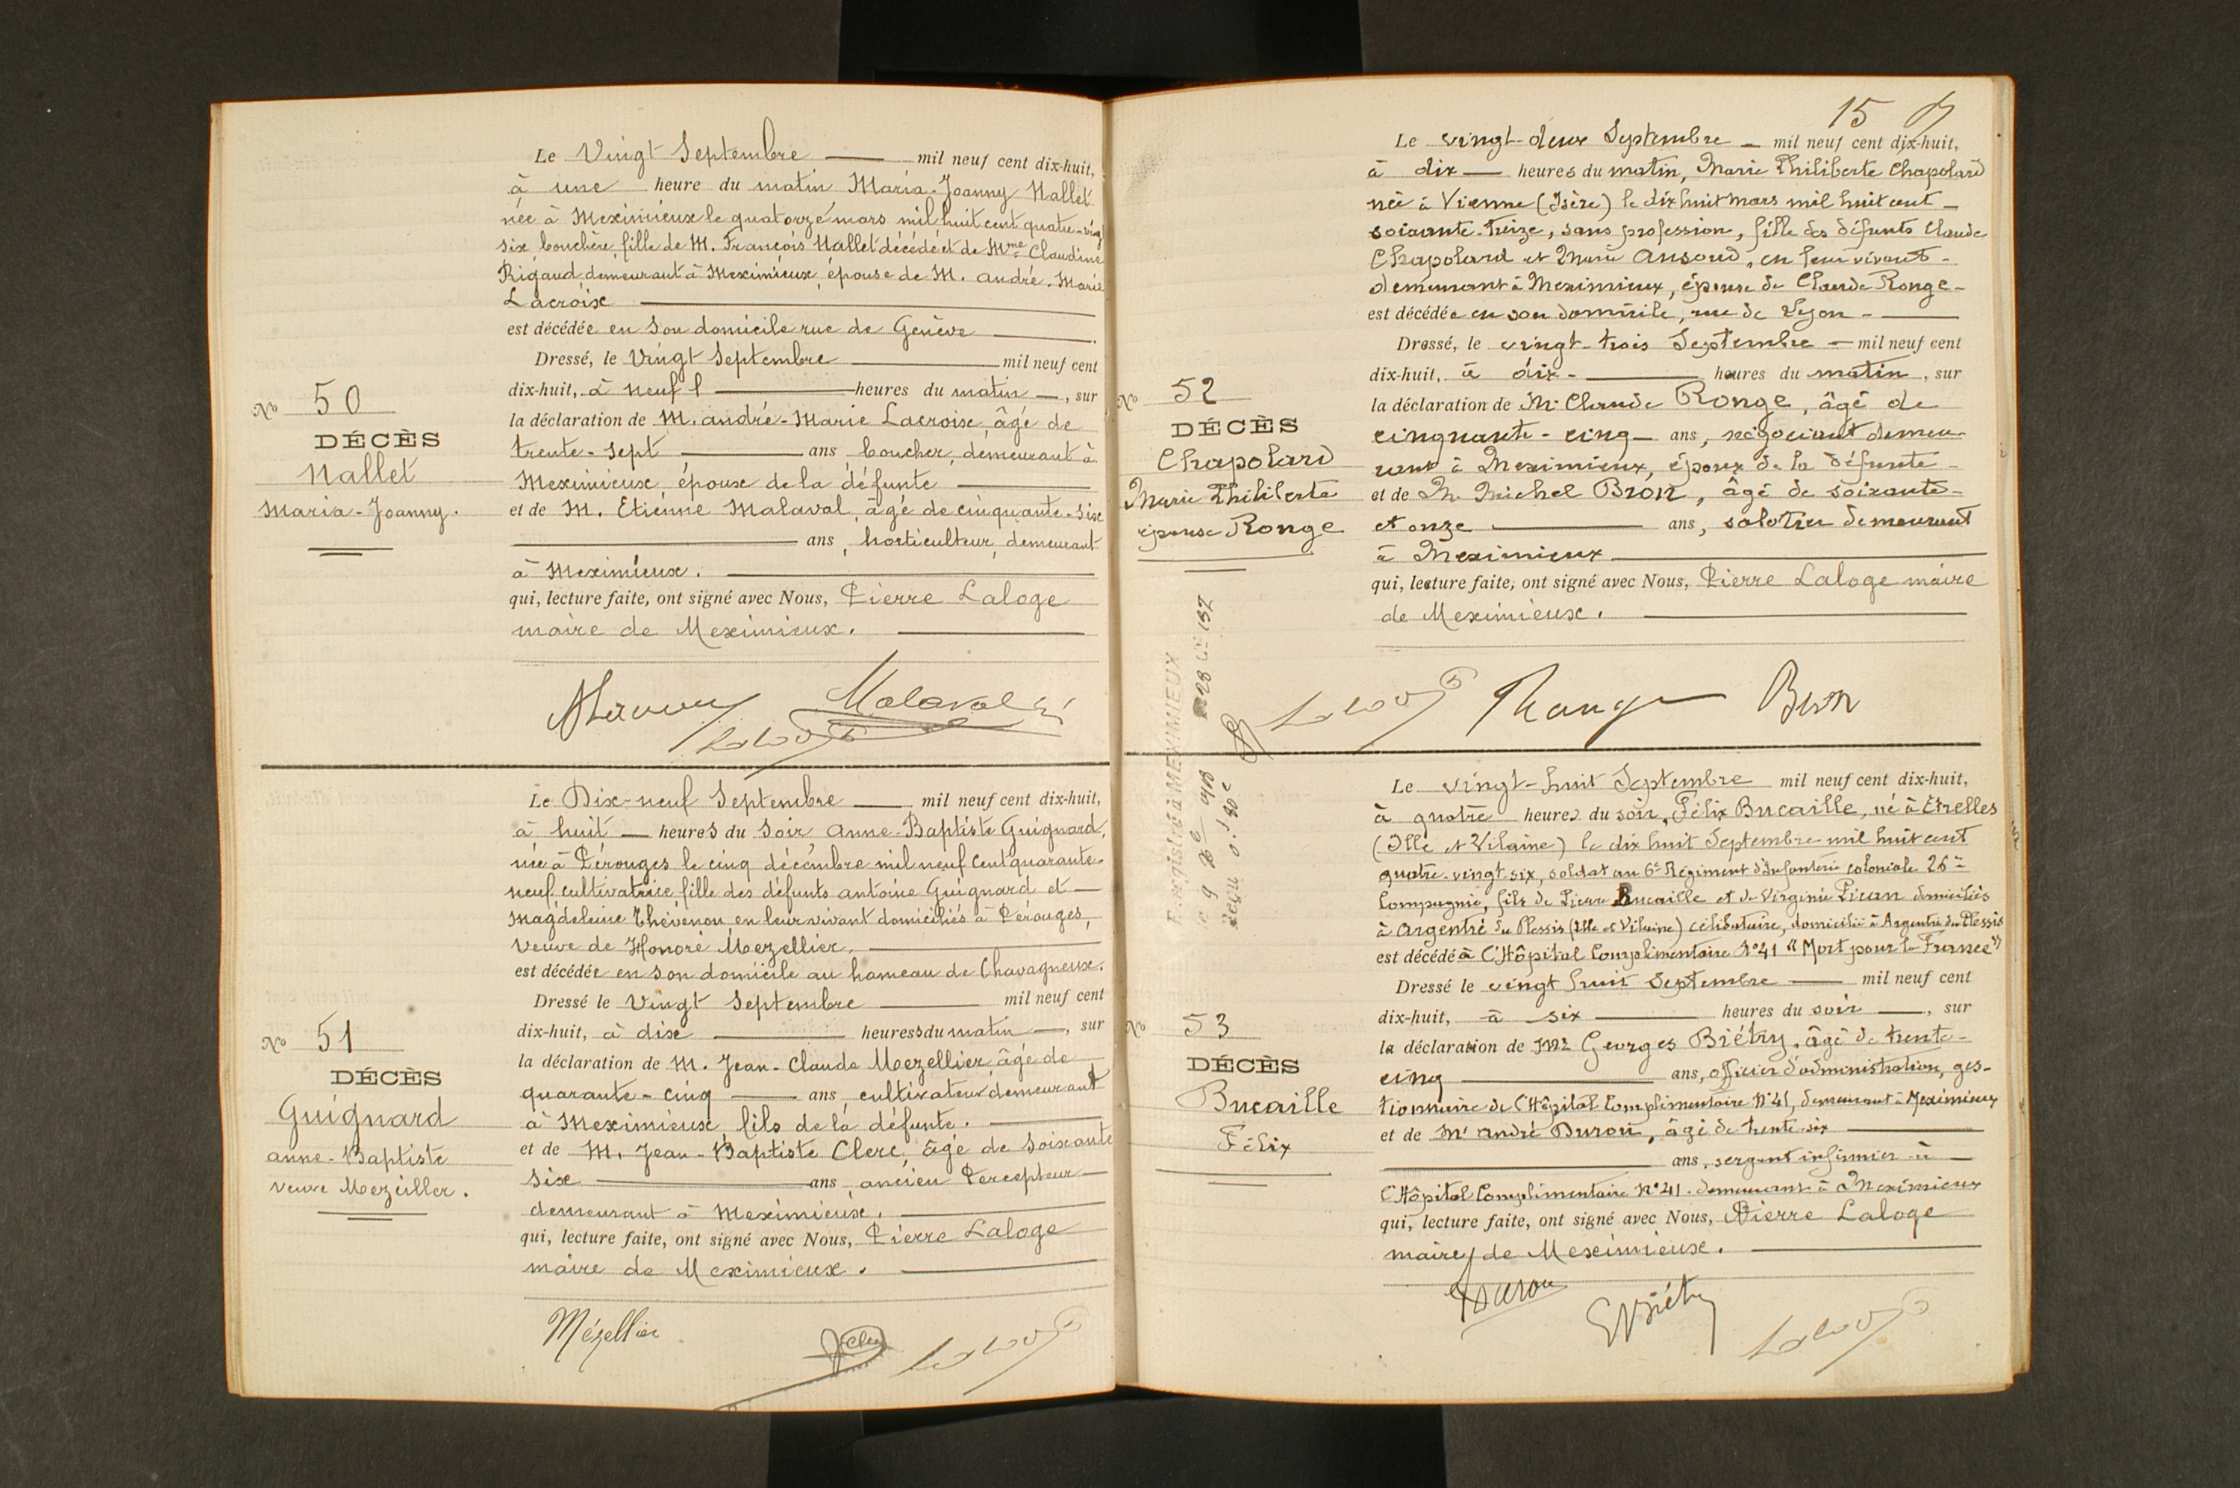 Le Vingt Septembre mil neuf cent dix-huit,
à une heure du matin Maria-Joanny Nallet
née à Meximieux le quatorze mars mil huit cent quatre-ving
six bouchère, fille de M. François Nallet décédé et de Mme Claudine
Rigaud, demeurant à Meximieux, épouse de M. André-Marie
Lacroix
est décédée en son domicile rue de Genève
Dressé, le Vingt Septembre mil neuf cent
dix-huit, à neuf heures du matin, sur
la déclaration de M. André-Marie Lacroix, âgé de
trente-sept ans, boucher, demeurant à
Meximieux, époux de la défunte
et de M. Etienne Malaval, âgé de cinquante-six
ans, horticulteur, demeurant
à Meximieux.
qui, lecture faite, ont signé avec Nous, Pierre Laloge
maire de Meximieux.
No 50
DÉCÈS
Nallet
Maria-Joanny.
Malaval
Le Dix-neuf Septembre mil neuf cent dix-huit,
à huit heures du Soir Anne-Baptiste Guignard,
née à Pérouges le cinq décembre mil neuf cent quarante-
neuf, cultivatrice, fille des défunts Antoine Guignard et
Magdeleine Thévenon, en leur vivant domiciliés à Pérouges,
Veuve de Honoré Mezellier,
est décédée en son domicile au hameau de Chavagneux.
Dressé le Vingt Septembre mil neuf cent
dix-huit, à dix heures du matin, sur
la déclaration de M. Jean-Claude Mezellier, âgé de
quarante-cinq ans, cultivateur demeurant
à Meximieux, fils de la défunte.
et de M. Jean-Baptiste Clerc, âgé de Soixante
six ans, ancien Percepteur
demeurant à Meximieux.
qui, lecture faite, ont signé avec Nous, Pierre Laloge
maire de Meximieux.
No 51
DÉCÈS
Guignard
Anne-Baptiste
veuve Mezeiller.
Mézellier
15
Le vingt-deux Septembre mil neuf cent dix-huit,
à dix heures du matin, Marie Philiberte Chapolard
née à Vienne (Isère) le dix huit mars mil huit cent
soixante-treize, sans profession, fille des défunts Claude
Chapolard et Marie Ansoud, en leur vivant
demeurant à Meximieux, épouse de Claude Ronge
est décédée en son domicile, rue de Lyon
Dressé, le vingt-trois Septembre mil neuf cent
dix-huit, à dix heures du matin, sur
la déclaration de Mr Claude Ronge, âgé de
cinquante-cinq ans, négociant demeu-
rant à Meximieux, époux de la défunte
et de Mr Michel Bron, âgé de soixante
et onze ans, sabotier demeurant
à Meximieux
qui, lecture faite, ont signé avec Nous, Pierre Laloge maire
de Meximieux.
No 52
DÉCÈS
Chapolard
Marie Philiberte
épouse Ronge
Ronge Bron
Le vingt-huit Septembre mil neuf cent dix-huit,
à quatre heures du soir, Félix Bucaille, né à Etrelles
(Ille et Vilaine) le dix huit Septembre mil huit cent
quatre-vingt six, soldat au 6e Régiment d'Infanterie coloniale 26e
Compagnie, fils de Pierre Bucaille et de Virginie Pican domiciliés
à Argentré du Plessis (Ille et Vilaine) célibataire, domicilié à Argentré du Plessis
est décédé à l'Hôpital Complémentaire No 41 "Mort pour la France"
Dressé le vingt huit Septembre mil neuf cent
dix-huit, à six heures du soir, sur
la déclaration de Mr Georges Biétry, âgé de trente-
cinq ans, officier d'administration, ges-
tionnaire de l'Hôpital Complémentaire No 41, demeurant à Meximieux
et de Mr André Duron, âgé de trente-six
ans, sergent infirmier à
l'Hôpital Complémentaire No 41. demeurant à Meximieux
qui, lecture faite, ont signé avec Nous, Pierre Laloge
maire de Meximieux.
No 53
DÉCÈS
Bucaille
Félix
Duron
GBiétry